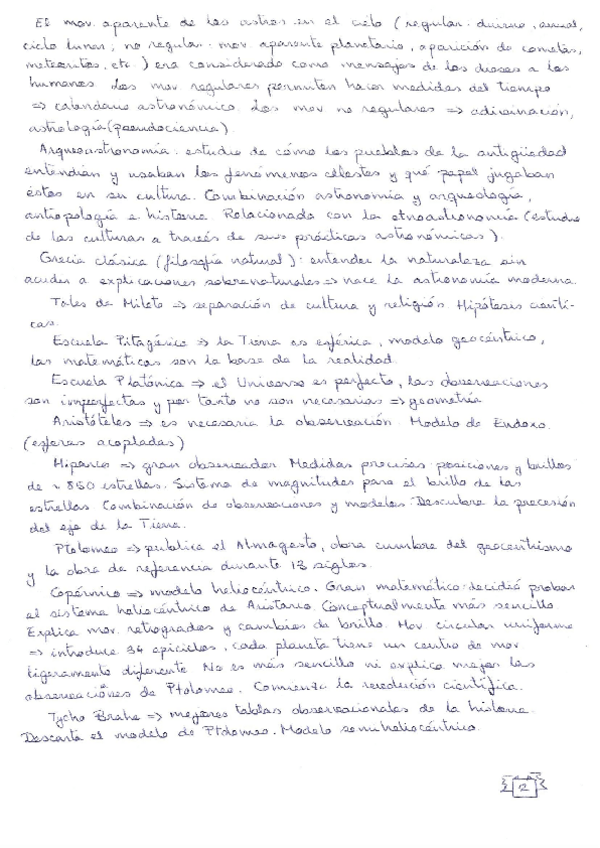 El mov. aparente de los astros en el cielo (regular: duirno, anual,
ciclo lunar; no regular: mov. aparente planetario, aparición de cometas,
meteoritos, etc.) era considerado como mensajes de los dioses a los
humanos. Los mov regulares permiten hacer medidas del tiempo
=> calendario astronómico. Los mov no regulares => adivinación,
astrología (pseudociencia).
Arqueoastronomía: estudio de cómo los pueblos de la antigüedad
entendían y usaban los fenómenos celestes y qué papel jugaban
éstos en su cultura. Combinación astronomía y arqueología,
antropología e historia. Relacionada con la etnoastronomía (estudio
de las culturas a través de sus prácticas astronómicas).
Grecia clásica (filosofía natural): entender la naturaleza sin
acudir a explicaciones sobrenaturales => nace la astronomía moderna.
Tales de Mileto => separación de cultura y religión. Hipótesis cientí-
cas.
Escuela Pitagórica => la Tierra es esférica, modelo geocéntrico,
las matemáticas son la base de la realidad.
Escuela Platónica => el Universo es perfecto, las observaciones
son imperfectas y por tanto no son necesarias => geometría
Aristóteles => es necesaria la observación. Modelo de Eudoxo.
(esferas acopladas)
Hiparco => gran observador. Medidas precisas: posiciones y brillos
de ~ 850 estrellas. Sistema de magnitudes para el brillo de las
estrellas. Combinación de observaciones y modelos. Descubre la precesión
del eje de la Tierra.
Ptolomeo => publica el Almagesto, obra cumbre del geocentrismo
y la obra de referencia durante 13 siglos.
Copérnico => modelo heliocéntrico. Gran matemático: decidió probar
el sistema heliocéntrico de Aristarco. Conceptualmente más sencillo.
Explica mov. retrogrados y cambios de brillo. Mov circular uniforme
=> introduce 34 epiciclos, cada planeta tiene un centro de mov
ligeramente diferente. No es más sencillo ni explica mejor las
observaciones de Ptolomeo. Comienza la revolución científica.
Tycho Brahe => mejores tablas observacionales de la historia.
Descarta el modelo de Ptolomeo. Modelo semiheliocéntrico.
2